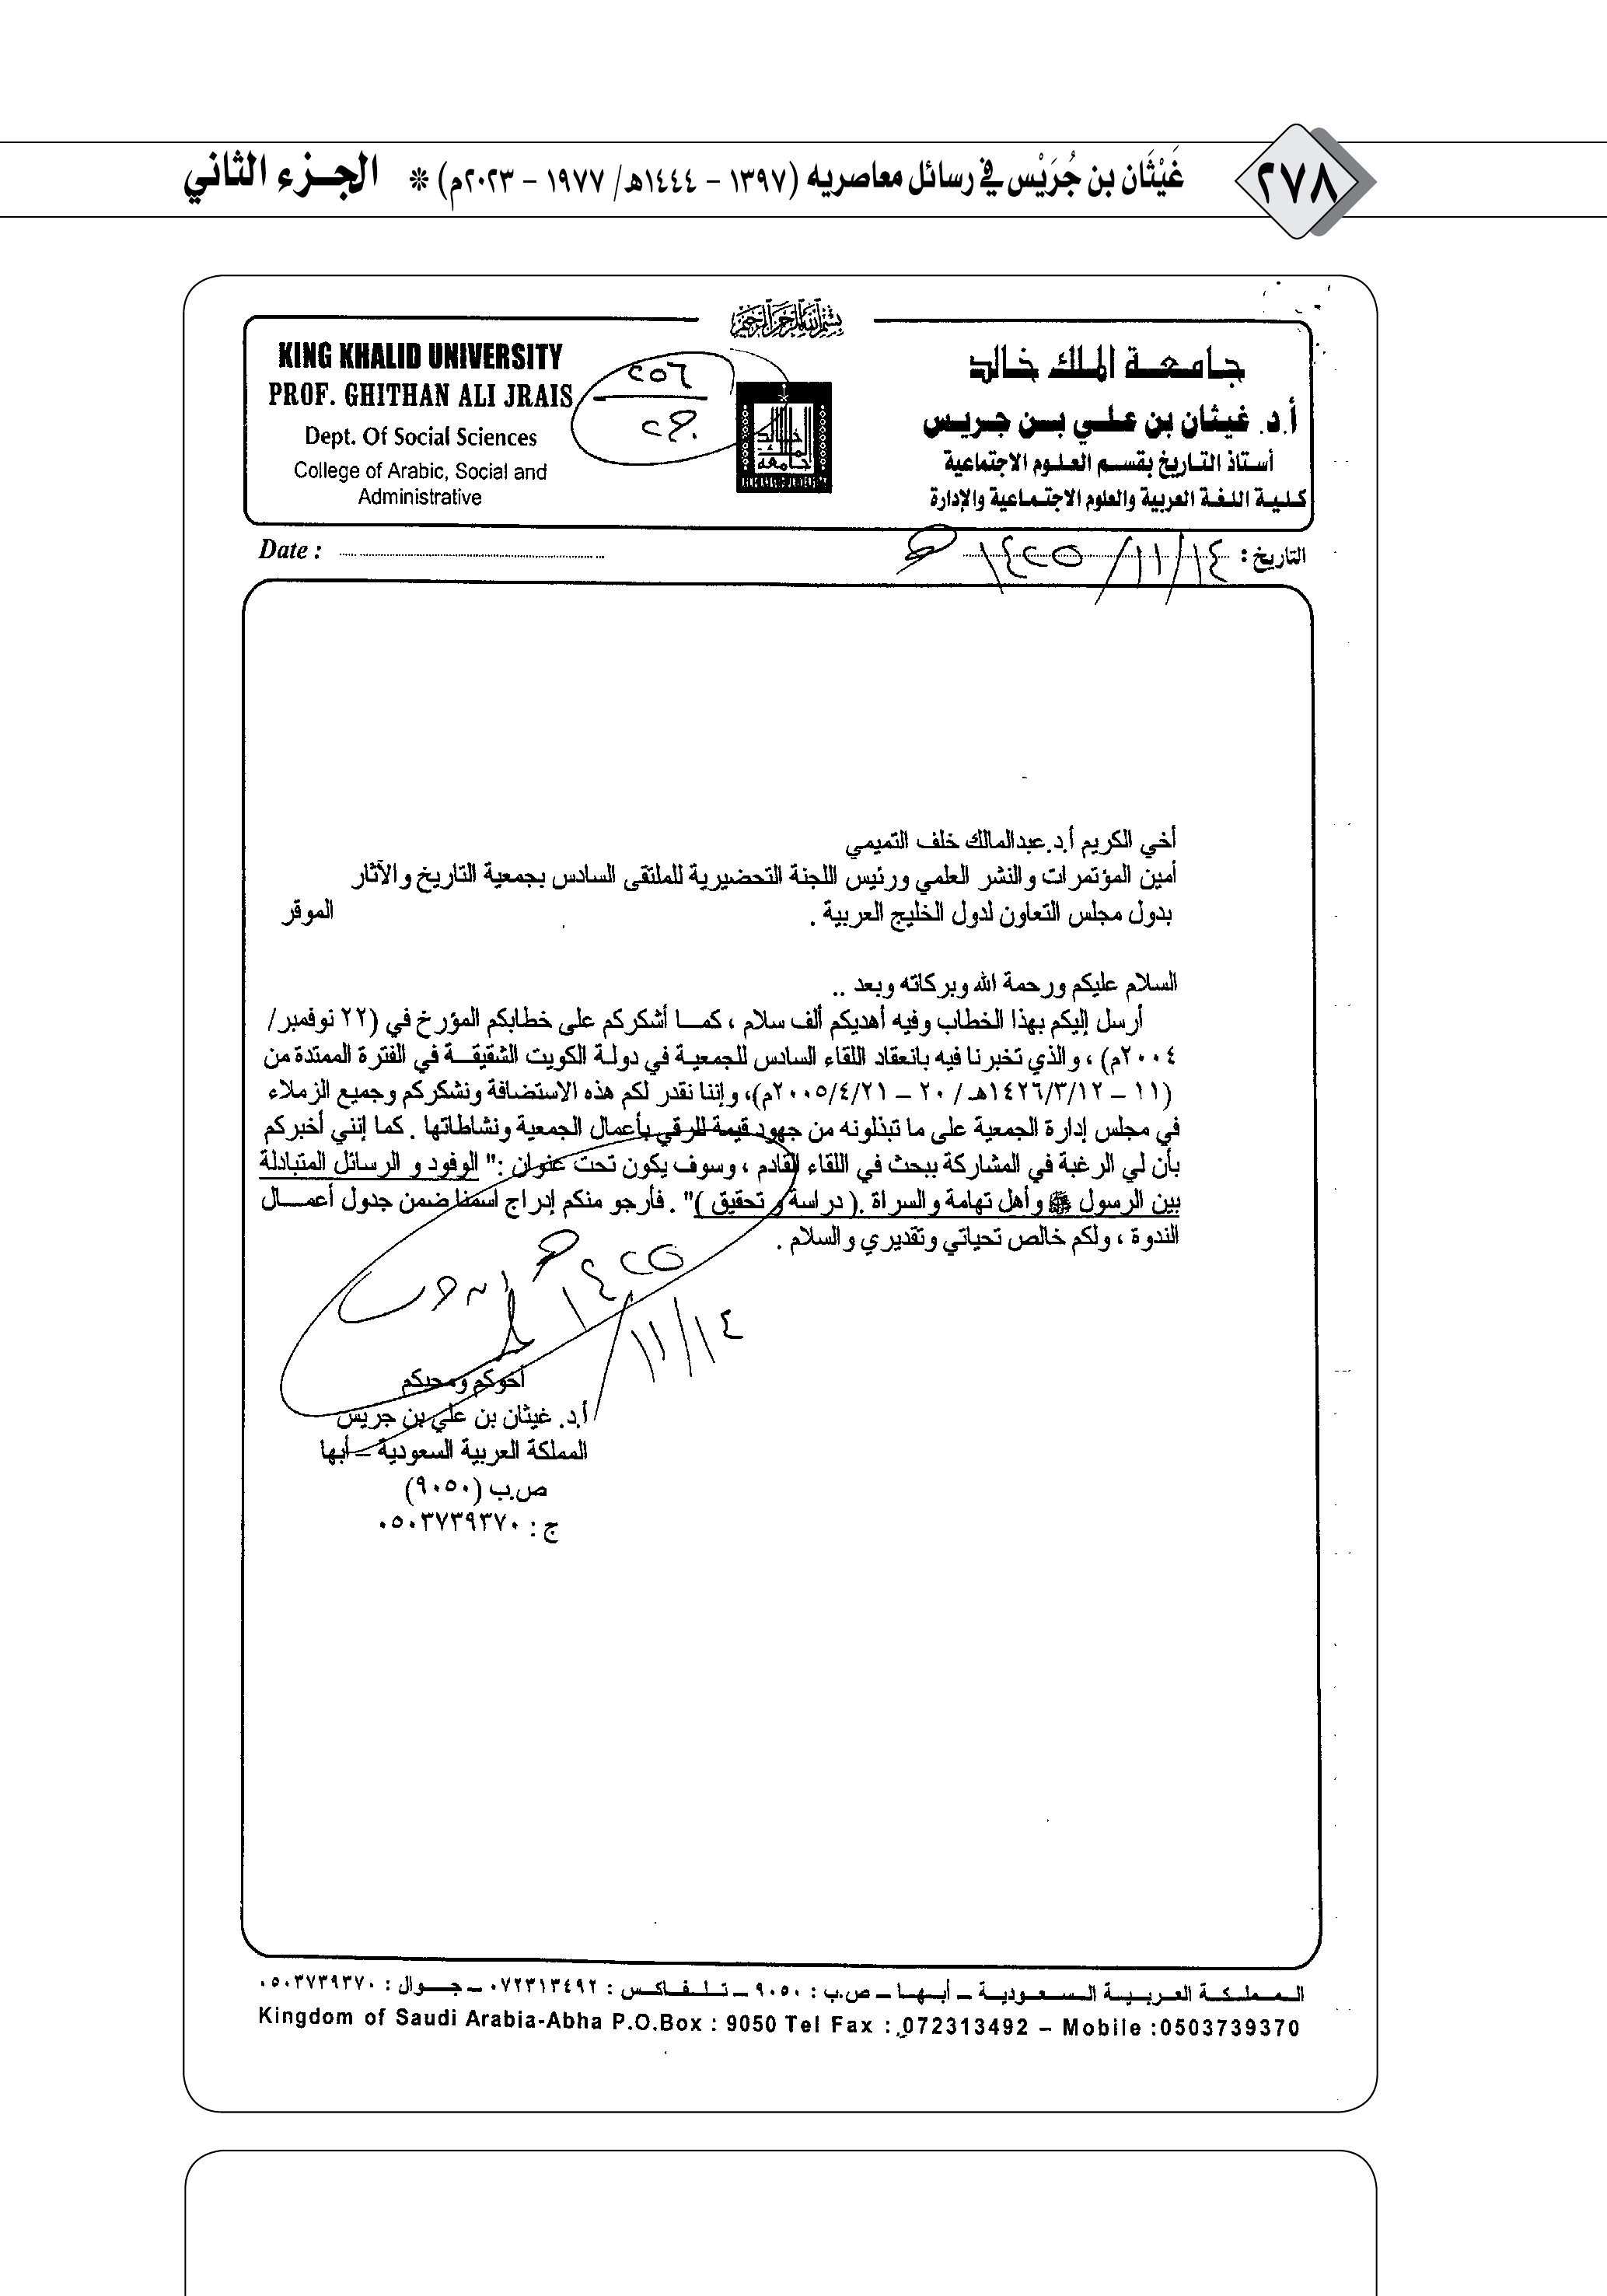 ٢٧٨
غَيْثَان بن جُرَيْس في رسائل معاصريه (١٣٩٧ - ١٤٤٤هـ/ ١٩٧٧ - ٢٠٢٣م) * الجزء الثاني
بسم الله الرحمن الرحيم
جامعة الملك خالد
أ.د. غيثان بن علي بن جريس
أستاذ التاريخ بقسم العلوم الاجتماعية
كلية اللغة العربية والعلوم الاجتماعية والإدارة
KING KHALID UNIVERSITY
PROF. GHITHAN ALI JRAIS
Dept. Of Social Sciences
College of Arabic, Social and
Administrative
٢٥٦
التاريخ : ١٤/ ١١/ ١٤٢٥هـ
Date :
أخي الكريم أ.د.عبدالمالك خلف التميمي
أمين المؤتمرات والنشر العلمي ورئيس اللجنة التحضيرية للملتقى السادس بجمعية التاريخ والآثار
بدول مجلس التعاون لدول الخليج العربية . الموقر
السلام عليكم ورحمة الله وبركاته وبعد ..
أرسل إليكم بهذا الخطاب وفيه أهديكم ألف سلام ، كمـــا أشكركم على خطابكم المؤرخ في (٢٢ نوفمبر/
٢٠٠٤م) ، والذي تخبرنا فيه بانعقاد اللقاء السادس للجمعية في دولة الكويت الشقيقـــة في الفترة الممتدة من
(١١ – ١٤٢٦/٣/١٢هـ / ٢٠ – ٢٠٠٥/٤/٢١م)، وإننا نقدر لكم هذه الاستضافة ونشكركم وجميع الزملاء
في مجلس إدارة الجمعية على ما تبذلونه من جهود قيمة للرقي بأعمال الجمعية ونشاطاتها . كما إنني أخبركم
بأن لي الرغبة في المشاركة ببحث في اللقاء القادم ، وسوف يكون تحت عنوان :" الوفود و الرسائل المتبادلة
بين الرسول ﷺ وأهل تهامة والسراة .( دراسة و تحقيق )" . فأرجو منكم إدراج اسمنا ضمن جدول أعمـــال
الندوة ، ولكم خالص تحياتي وتقديري والسلام .
١٤٢٥هـ
١٤/ ١١/
أخوكم ومحبكم
أ.د. غيثان بن علي بن جريس
المملكة العربية السعودية – أبها
ص.ب (٩٠٥٠)
ج : ٠٥٠٣٧٣٩٣٧٠
المملكة العربية السعودية – أبها – ص.ب : ٩٠٥٠ – تلفاكس : ٠٧٢٣١٣٤٩٢ – جوال : ٠٥٠٣٧٣٩٣٧٠
Kingdom of Saudi Arabia-Abha P.O.Box : 9050 Tel Fax : 072313492 – Mobile :0503739370